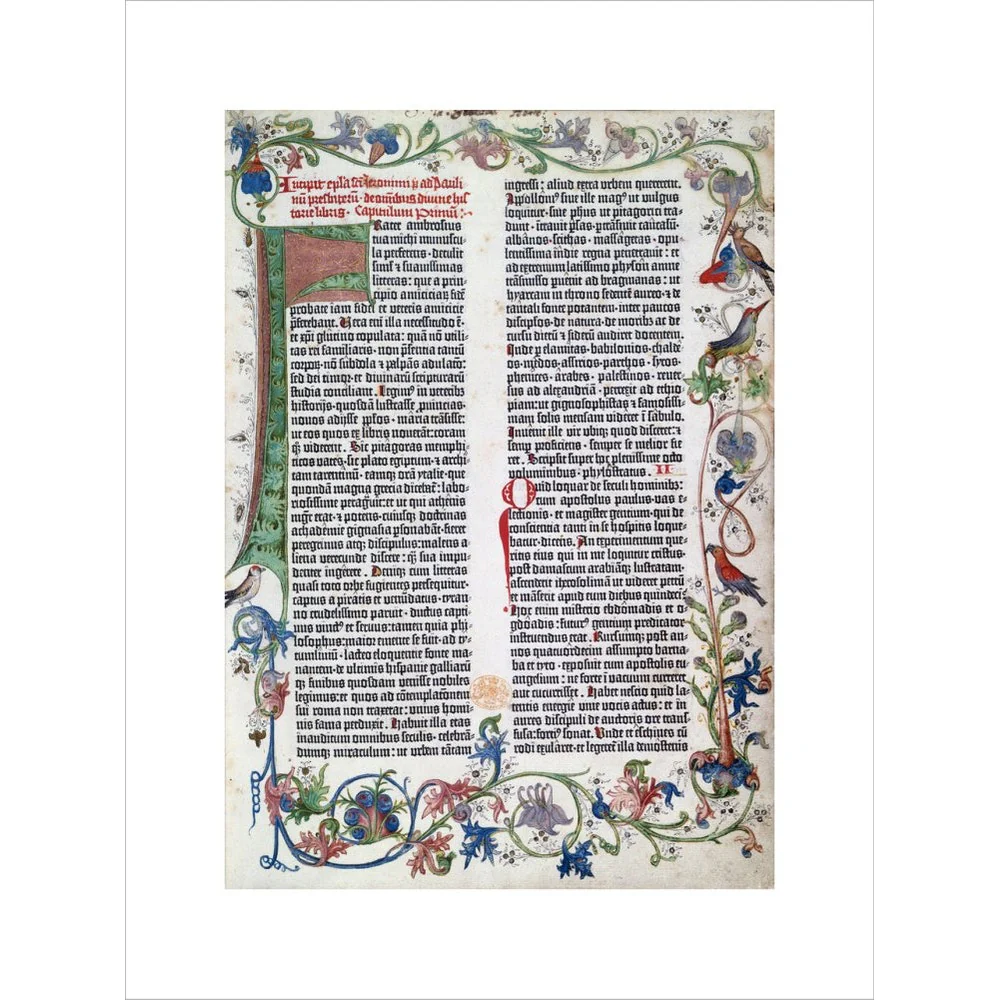 Incipit epla scī Jeronimi p̄ ad Pauli-
nū presbiterū · de omnibus divine his-
torie libris · Capitulum Primū:-
Frater ambrosius
tua michi munuscu-
la perferens · detulit
simł ꝛ suavissimas
litteras: que a prin-
cipio amiciciarꝫ fidē
probate iam fidei et veteris amicicie
p̄ferebant. Vera enī illa necessitudo ē·
et xp̄i glutino copulata: quam nō utili-
tas rei familiaris · non p̄sentia tantū
corporꝫ · nō subdola ꝛ palpās adulacō:
sed dei timor · et divinarū scripturarū
studia conciliant. Legimꝰ in veteribꝫ
historijs · quosdā lustrasse puīncias·
novos adijsse pp̄los · maria trāsisse·
ut eos quos ex libris noverāt: coram
qꝫ viderent. Sic pitagoras memphi-
ticos vates · sic plato egiptum · ꝛ archi-
tam tarentinū · eamqꝫ orā ytalie · que
quondā magna grecia dicebat: labo-
riosissime peragrit: et ut qui athenis
mgr̄ erat · ꝛ potens · cuiusqꝫ doctrinas
achademie gignasia psonabāt · fieret
peregrinus atqꝫ discipulus: malens a-
liena verecunde discere: qꝫ sua impu-
denter ingerere. Deniqꝫ cum litteras
quasi toto orbe fugientes persequitur·
captus a piratis et venūdatus · tyran-
no crudelissimo paruit · ductus capti-
vus vinctꝰ et servus: tamen quia phi-
losophus: maior emente se fuit · ad ty-
tumlivium · lacteo eloquentie fonte ma-
nantem · de ultimis hispanie galliarū
qꝫ finibus quosdam venisse nobiles
legimus: et quos ad cōtemplacōnem
sui roma non traxerat: unius homi-
nis fama perduxit. Habuit illa etas
inauditum omnibus seculis · celebrā-
dumqꝫ miraculum: ut urbem tātam
ingressi: aliud extra urbem quererent.
Appollonꝰ sive ille magꝰ ut vulgus
loquitur · sive ph̄us · ut pitagorici tra-
dunt · ītravit p̄sas · ptrāsivit caucasū·
albānos · scithas · massagetas · opu-
lentissima indie regna penetravit: et
ad extremum latissimo physon amne
trāsmisso puenit ad bragmanas: ut
hyarcam in throno sedentē aureo · ꝛ de
tantali fonte potantem · inter paucos
discipłos · de natura · de moribꝫ ac de
cursu dierū ꝛ siderū audiret docentem.
Inde p elamitas · babilonios · chalde-
os · medos · assirios · parthos · syros·
phenices · arabes · palestinos · rever-
sus ad alexandriā · perrexit ad ethio-
piam: ut gignosophistas ꝛ famosissi-
mam solis mensam videret ī sabulo.
Invenit ille vir ubiqꝫ quod disceret: ꝛ
semp proficiens · semper se melior fie-
ret. Scripsit super hoc plenissime octo
voluminibus · phylostratus. II
Quid loquar de seculi hominibꝫ:
cum apostolus paulus · vas e-
lectionis · et magister gentium · qui de
conscientia tanti in se hospitis loque-
batur · dicens. An experimentum que-
ritis eius qui in me loquitur cristus·
post damascum arabiāqꝫ lustratam·
ascenderit iherosolimā ut videret petrū
et māserit apud eum diebus quindeci·
Hoc enim misterio ebdōmadis et o-
gdoadis: futurꝰ gentium predicator
instruendus erat. Rursumqꝫ post an-
nos quatuordecim assumpto barna-
ba et tyto · exposuit cum apostolis eu-
angelium: ne forte ī vacuum curreret
aut cucurrisset. Habet nescio quid la-
tentis energie vive vocis actus: et in
aures discipuli de auctoris ore trans-
fusa: fortiꝰ sonat. Unde et eschines cū
rodi exularet · et legeret illa demosteīs